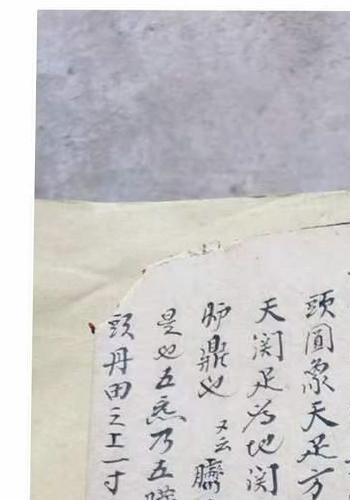 頭圓象天足方
天関足為地関
炉鼎也又云臍
是也五炁乃五臟
頭丹田之上一寸